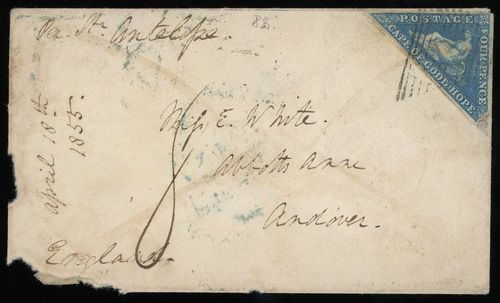 Per Str. Antelope.
82
POSTAGE
FOUR PENCE
CAPE OF GOOD HOPE
April 18th
1855.
Miss E. White.
Abbotts Anne
Andover.
England.
8